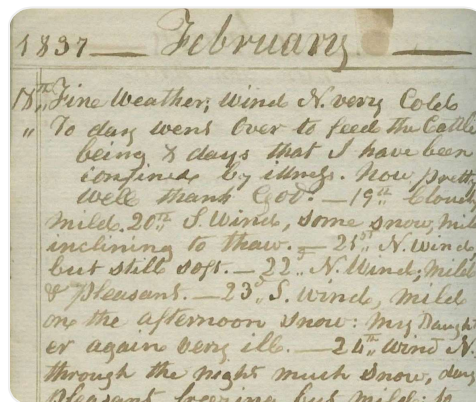 1837 — February —
18th, Fine Weather; Wind N. very Cold
" To day went Over to feed the Cattle
being 8 days that I have been
confined by illness. Now pretty
well thank God. — 19th Cloudy
mild. 20th S. Wind, some snow, mild
inclining to thaw. — 21st N. Wind
but still soft. — 22d N. Wind, mild
& Pleasant. — 23d S. Wind, mild
on the afternoon snow: my Daught
er again very ill. — 24th Wind N
through the night much snow, day
Pleasant freezing but mild: so